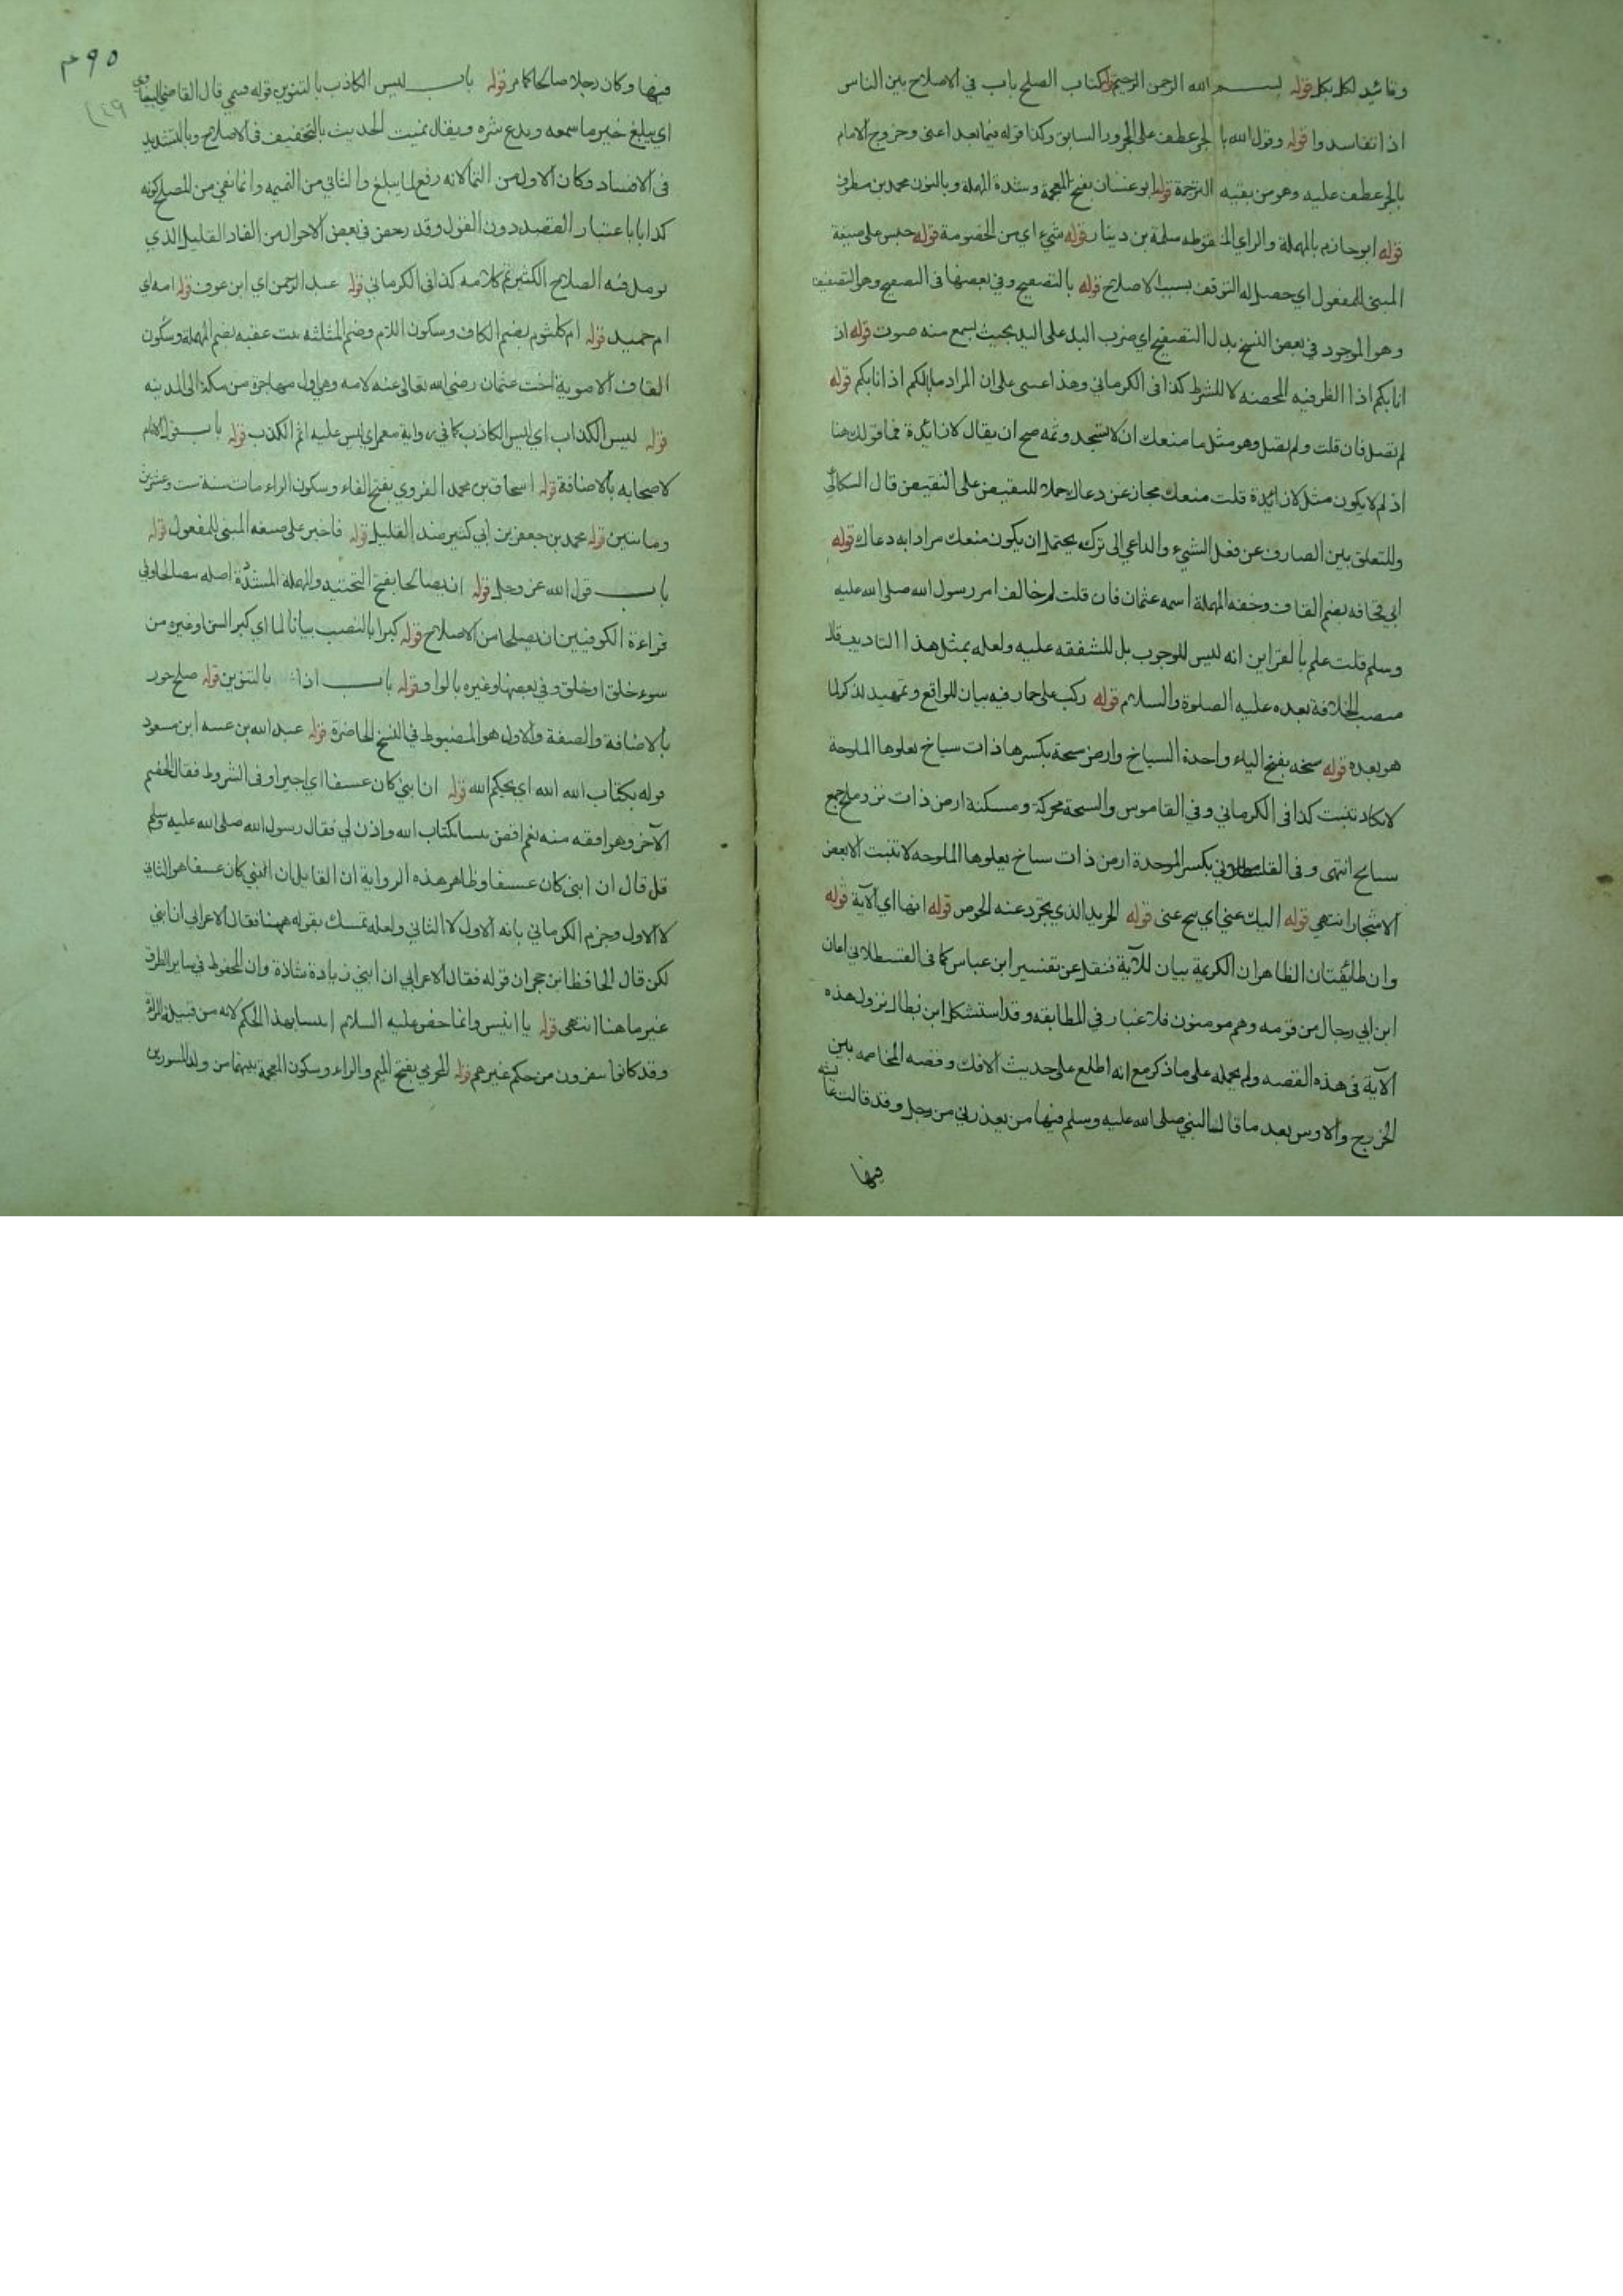 وتائيد لكل بكل قوله بسم الله الرحمن الرحيم قوله كتاب الصلح باب في الاصلاح بين الناس
اذا تفاسدوا قوله وقول الله بالجر عطف على المجرور السابق وكذا قوله فيما بعد اعنى وخروج الامام
بالجر عطف عليه وهو من بقيه الترجمة قوله ابو غسان بفتح المعجمة وشدة المهملة وبالنون محمد بن مطرف
قوله ابو حازم بالمهملة والزاي المنقوطه سلمة بن دينار قوله شيء اي من الخصومة قوله حبس على صيغة
المبنى للمفعول اي حصل له التوقف بسبب الاصلاح قوله بالتصفيح وفي بعضها في التصفيح وهو التصفيق
وهو الموجود في بعض النسخ بدل التصفيح اي ضرب اليد على اليد بحيث يسمع منه صوت قوله اذ
انابكم اذا الظرفيه المحضه لا للشرط كذا فى الكرماني وهذا على ان المراد مالكم اذ انابكم قوله
لم تصل فان قلت ولم تصل وهو مثل ما منعك ان لا تسجد وثمه صح ان يقال لا زائدة فما قولك هنا
اذ لم لا يكون مثل لا زائدة قلت منعك مجاز عن دعاك حملا للنقيض على النقيض قال السكاكي
وللتعلق بين الصارف عن فعل الشيء والداعي الى تركه يحتمل ان يكون منعك مرادا به دعاك قوله
ابي قحافه بضم القاف وخفه المهملة اسمه عثمان فان قلت لم خالف امر رسول الله صلى الله عليه
وسلم قلت علم بالقراين انه ليس للوجوب بل للشفقه عليه ولعله بمثل هذا التاديب
منصب الخلافة بعده عليه الصلوة والسلام قوله ركب على حمار فيه بيان للواقع وتمهيد لذكر لما
هو بعده قوله سبخه بفتح الباء واحدة السباخ وارض سبخة بكسرها ذات سباخ تعلوها الملوحة
لا تكاد تنبت كذا فى الكرماني وفي القاموس والسبخة محركة ومسكنة ارض ذات نز وملح جمع
سباخ انتهى وفى القسطلاني بكسر الموحدة ارض ذات سباخ يعلوها الملوحه لا تنبت الا بعض
الاشجار انتهى قوله اليك عني اي تنح عنى قوله الجريد الذي يجرد عنه الخوص قوله انها اي الآية قوله
وان طائفتان الظاهر ان الكريمة بيان للآية فنقل عن تفسير ابن عباس كما فى القسطلاني اعان
ابن ابي رجال من قومه وهم مومنون فلا غبار في المطابقه وقد استشكل ابن بطال نزول هذه
الآية فى هذه القصه ولم يحمله على ما ذكر مع انه اطلع على حديث الافك وقصه المخاصمه بين
الخزرج والاوس بعد ما قال النبي صلى الله عليه وسلم فيها من يعذرني من رجل وقد قالت عائشه
فيها
٩٥
٢٤٩
فيها وكان رجلا صالحا كامر قوله باب ليس الكاذب بالتنوين قوله فينمي قال القاضي البيضاوي
اي يبلغ خير ما سمعه ويدع شره ويقال نميت الحديث بالتخفيف فى الاصلاح وبالتشديد
فى الافساد وكان الاول من النما لانه رفع لما يبلغ والثاني من النميمه وانما نفي من المصلح كونه
كذابا باعتبار القصد دون القول وقد رخص فى بعض الاحوال من الفساد القليل الذي
يومل فيه الصلاح الكثير تم كلامه كذا فى الكرماني قوله عبد الرحمن اي ابن عوف قوله امه اي
ام حميد قوله ام كلثوم بضم الكاف وسكون اللام وضم المثلثه بنت عقبه بضم المهملة وسكون
القاف الاموية اخت عثمان رضي الله تعالى عنه لامه وهي اول مهاجرة من مكة الى المدينه
قوله ليس الكذاب اي ليس الكاذب كما في رواية معمر اي ليس عليه اثم الكذب قوله باب قول الامام
لاصحابه بالاضافة قوله اسحاق بن محمد الفروي بفتح الفاء وسكون الراء مات سنة ست وعشرين
وماتين قوله محمد بن جعفر بن ابي كثير ضد القليل قوله فاخبر على صيغه المبنى للمفعول قوله
باب قول الله عز وجل قوله ان يصالحا بفتح التحتيه والمهملة المشددة اصله يتصالحا وفي
قراءة الكوفيين ان يصلحا من الاصلاح قوله كبرا بالنصب بيانا لما اي كبر السن او غيره من
سوء خلق او خلق وفي بعضها وغيره بالواو قوله باب اذا بالتنوين قوله صلح جور
بالاضافة والصفة والاول هو المضبوط في النسخ الحاضرة قوله عبد الله بن عتبه ابن مسعود
قوله بكتاب الله اي بحكم الله قوله ان ابني كان عسيفا اي اجيرا وفى الشروط فقال الخصم
الآخر وهو افقه منه نعم اقض بيننا بكتاب الله واذن لي فقال رسول الله صلى الله عليه وسلم
قل قال ان ابنى كان عسيفا وظاهر هذه الرواية ان القايل ان ابني كان عسيفا هو الثاني
لا الاول وجزم الكرماني بانه الاول لا الثاني ولعله تمسك بقوله ههنا فقال الاعرابي ان ابني
لكن قال الحافظ ابن حجر ان قوله فقال الاعرابي ان ابني زيادة شاذة وان المحفوظ في ساير الطرق
غير ما هنا انتهى قوله يا انيس وانما خص عليه السلام انيسا بهذا الحكم لانه من قبيلة المراة
وقد كانوا ينفرون من حكم غيرهم قوله المخرمي بفتح الميم والراء وسكون المعجمة بينهما من ولد المسور بن